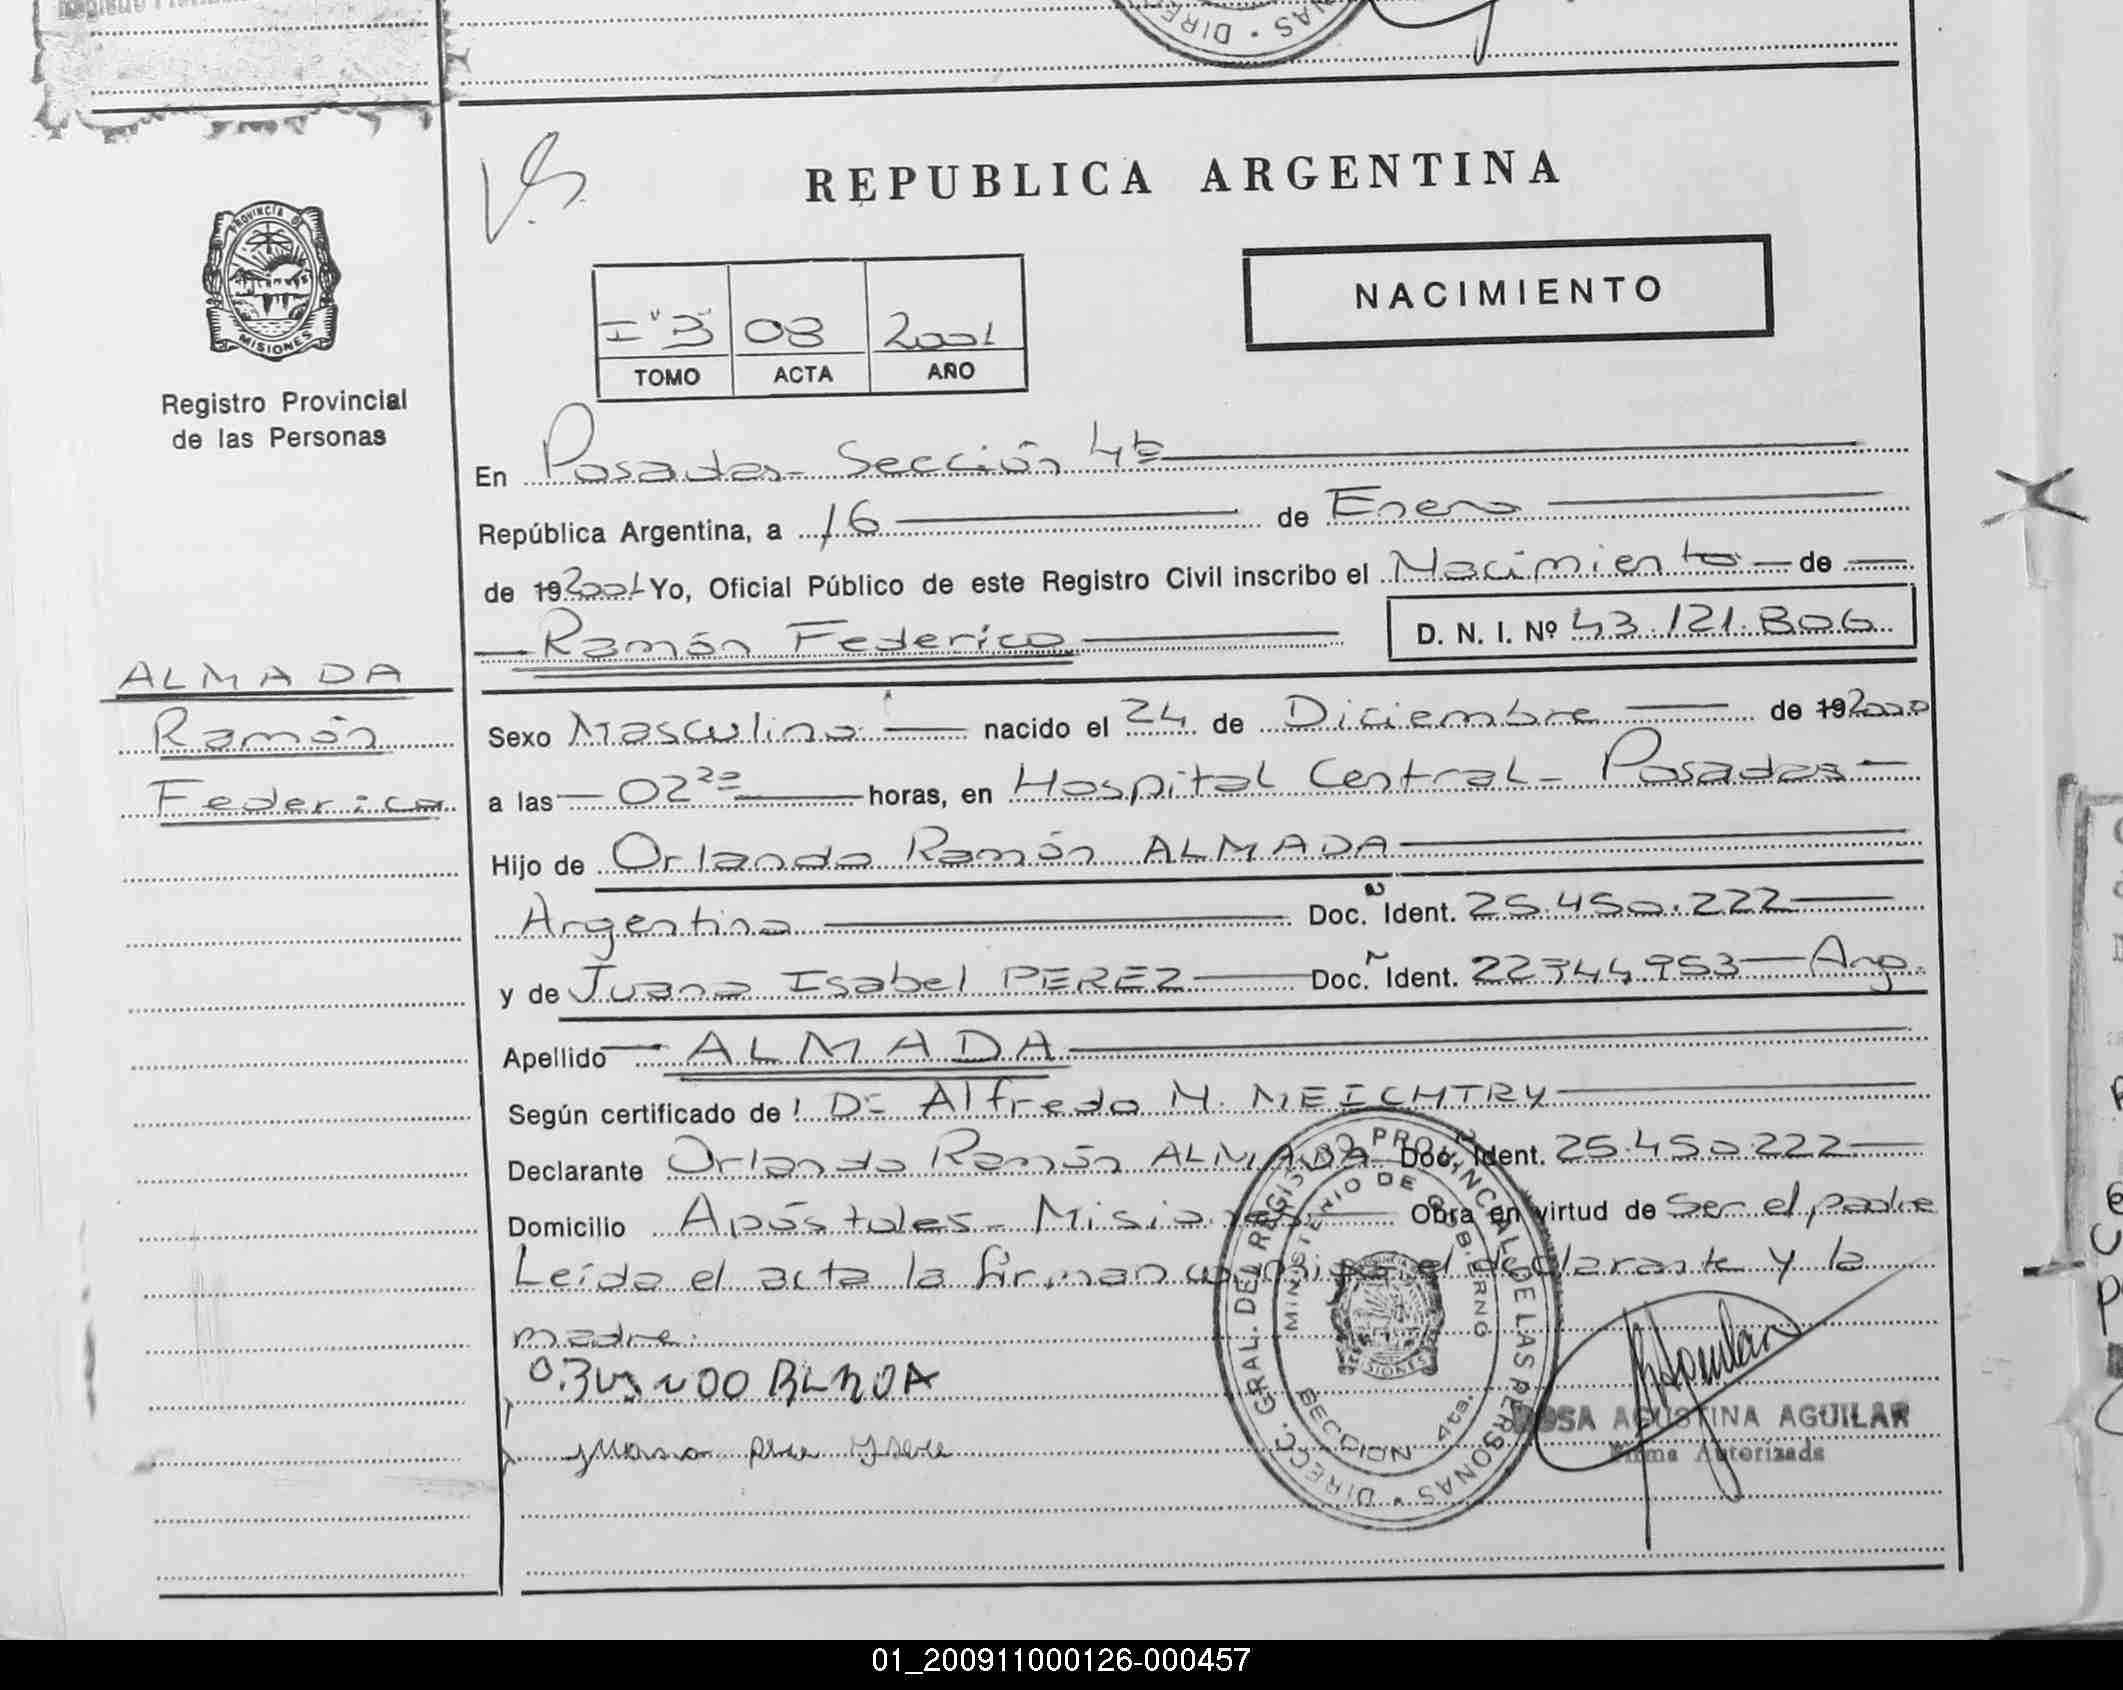 DIREC · NAS
REPUBLICA ARGENTINA
PROVINCIA DE MISIONES
Registro Provincial
de las Personas
I "B" 08 2001
TOMO ACTA AÑO
NACIMIENTO
En Posadas - Sección 4ta
República Argentina, a 16 de Enero
de 19 2001 Yo, Oficial Público de este Registro Civil inscribo el Nacimiento de
Ramón Federico D. N. I. Nº 43.121.806
ALMADA
Ramón
Federico
Sexo Masculino nacido el 24 de Diciembre de 19 2000
a las 02 20 horas, en Hospital Central - Posadas
Hijo de Orlando Ramón ALMADA
Argentino Doc. Ident. 25.450.222
y de Juana Isabel PEREZ Doc. Ident. 22344953 Arg.
Apellido ALMADA
Según certificado de: Dr Alfredo N. MEICHTRY
Declarante Orlando Ramón ALMADA Doc. Ident. 25.450.222
Domicilio Apóstoles - Misiones Obra en virtud de Ser el padre
Leída el acta la firman conmigo el declarante y la
madre.
DIREC. GRAL. DEL REGISTRO PROVINCIAL DE LAS PERSONAS
MINISTERIO DE GOBIERNO
SECCION 4ta.
MISIONES
ROSA AGUSTINA AGUILAR
Firma Autorizada
01_200911000126-000457